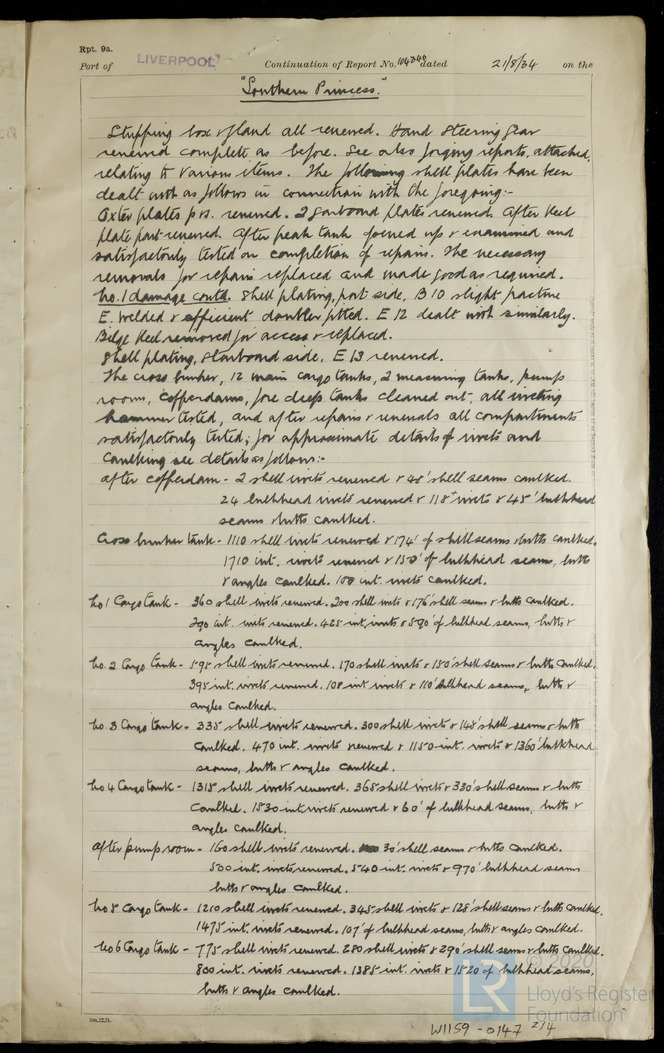 Rpt. 9a.
Port of LIVERPOOL Continuation of Report No. 104340 dated 21/8/34 on the
"Southern Princess."
Stuffing box & gland all renewed. Hand Steering Gear
renewed complete as before. See also forging reports, attached,
relating to various items. The following shell plates have been
dealt with as follows in connection with the foregoing:-
Oxter plates p&s. renewed. 2 garboard plates renewed. After keel
plate part renewed. After peak tank joined up & examined and
satisfactorily tested on completion of repairs. The necessary
removals for repairs replaced and made good as required.
No. 1 damage contd. Shell plating, port side, B 10 slight fracture
E. Welded & efficient doubler fitted. E 12 dealt with similarly.
Bilge keel removed for access & replaced.
Shell plating, starboard side, E 13 renewed.
The cross bunker, 12 main cargo tanks, 2 measuring tanks, pump
rooms, cofferdams, fore deep tanks cleaned out, all riveting
hammer tested, and after repairs & renewals all compartments
satisfactorily tested; for approximate details of rivets and
caulking see details as follows:-
After cofferdam - 2 shell rivets renewed & 48' shell seams caulked.
24 bulkhead rivets renewed & 118 rivets & 45' bulkhead
seams & butts caulked.
Cross bunker tank - 1110 shell rivets renewed & 174' of shell seams & butts caulked.
1710 int. rivets renewed & 150' of bulkhead seams, butts
& angles caulked. 100 int. rivets caulked.
No 1 Cargo tank - 360 shell rivets renewed. 200 shell rivets & 176' shell seams & butts caulked.
290 int. rivets renewed. 425 int. rivets & 590' of bulkhead seams, butts &
angles caulked.
No. 2 Cargo tank - 595 shell rivets renewed. 170 shell rivets & 150' shell seams & butts caulked.
395 int. rivets renewed. 108 int rivets & 110' bulkhead seams, butts &
angles caulked.
No. 3 Cargo tank - 335 shell rivets renewed. 300 shell rivets & 148' shell seams & butts
caulked. 470 int. rivets renewed & 1150 int. rivets & 1360' bulkhead
seams, butts & angles caulked.
No 4 Cargo tank - 1315 shell rivets renewed. 365 shell rivets & 330' shell seams & butts
caulked. 1530 int rivets renewed & 60' of bulkhead seams, butts &
angles caulked.
After pump room - 160 shell rivets renewed. 30' shell seams & butts caulked.
500 int. rivets renewed. 540 int. rivets & 970' bulkhead seams
butts & angles caulked.
No 5 Cargo tank - 1210 shell rivets renewed. 345 shell rivets & 128' shell seams & butts caulked.
1475 int. rivets renewed. 107' of bulkhead seams, butts & angles caulked.
No 6 Cargo tank - 775 shell rivets renewed. 280 shell rivets & 290' shell seams & butts caulked.
800 int. rivets renewed. 1385 int. rivets & 1520' of bulkhead seams,
butts & angles caulked.
© 2020
LR Lloyd's Register
Foundation
W1159-0147 2/4